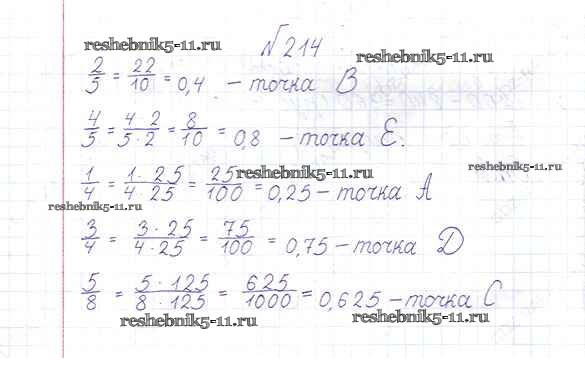 reshebnik5-11.ru
№ 214
reshebnik5-11.ru
2/5 = 22/10 = 0,4 – точка B
4/5 = 4·2/5·2 = 8/10 = 0,8 – точка E.
reshebnik5-11.ru
reshebnik5-11.ru
1/4 = 1·25/4·25 = 25/100 = 0,25 – точка A
reshebnik5-11.ru
3/4 = 3·25/4·25 = 75/100 = 0,75 – точка D
5/8 = 5·125/8·125 = 625/1000 = 0,625 – точка C
reshebnik5-11.ru
reshebnik5-11.ru